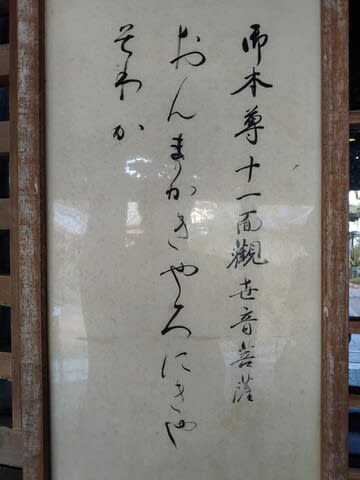 御本尊十一面觀世音菩薩
おんまかきやろにきや
そわか